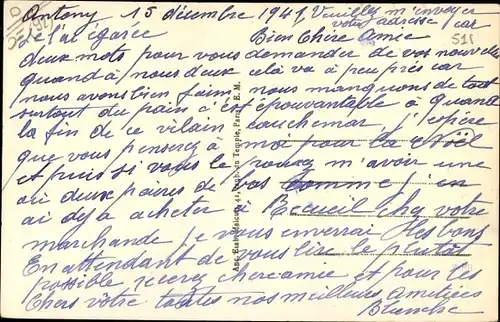 Antony 15 décembre 1941, Veuillez m'envoyer
votre adresse car
je l'ai égarée Bien Chère Amie
deux mots pour vous demander de vos nouvelles
quand à nous deux cela va à peu près car
nous avons bien faim nous manquons de tout
surtout du pain c'est épouvantable à quand
la fin de ce vilain cauchemar j'espère
que vous penserez à moi pour la Noël
et puis si vous pouvez m'avoir une
ou deux paires de bas comme j'en
ai déjà acheter à Recueil chez votre
marchande je vous enverrai les bons
En attendant de vous lire le plutôt
possible recevez chère amie et pour les
Chers vôtre toutes nos meilleures amitiées
Blanche